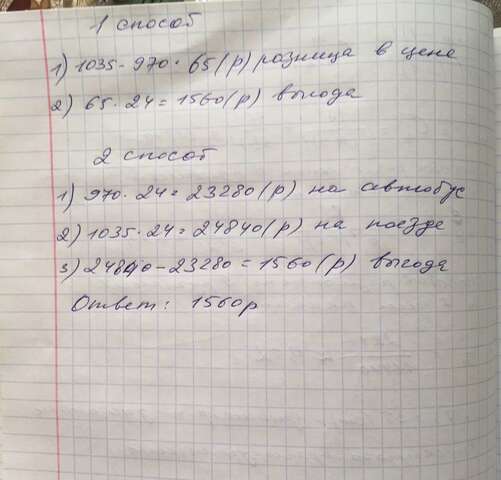 1 способ
1) 1035 - 970 = 65 (р) розница в цене
2) 65 · 24 = 1560 (р) выгода
2 способ
1) 970 · 24 = 23280 (р) на автобус
2) 1035 · 24 = 24840 (р) на поезде
3) 24840 - 23280 = 1560 (р) выгода
Ответ: 1560р